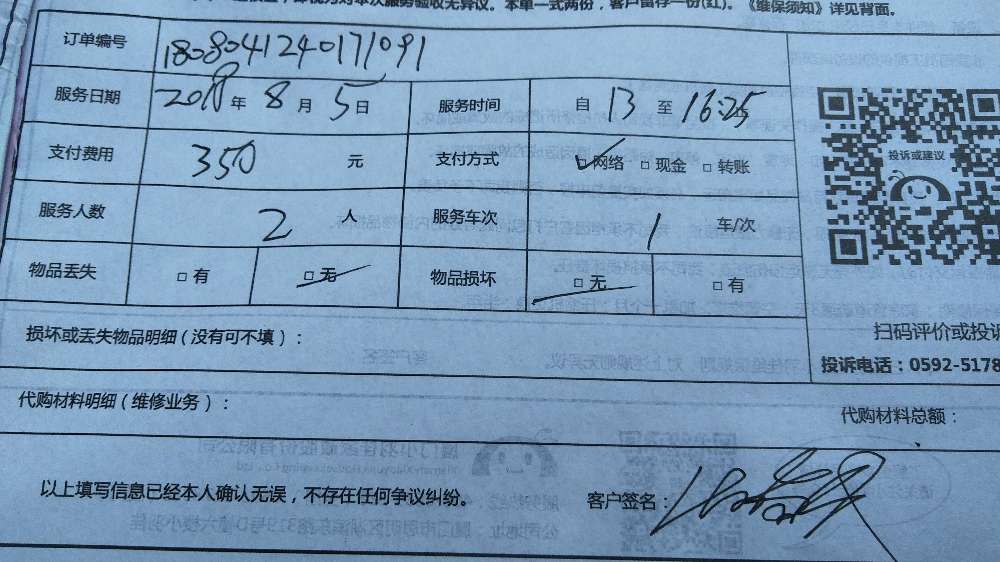 本单一式两份，客户留存一份(红)。《维保须知》详见背面。
订单编号 1808041240171091
服务日期 2018年8月5日 服务时间 自13至16:25
支付费用 350 元 支付方式 □网络 □现金 □转账
服务人数 2 人 服务车次 1 车/次
物品丢失 □有 □无 物品损坏 □无 □有
投诉或建议
损坏或丢失物品明细（没有可不填）：
扫码评价或投诉
投诉电话：0592-5178
代购材料明细（维修业务）：
代购材料总额：
以上填写信息已经本人确认无误，不存在任何争议纠纷。
客户签名：